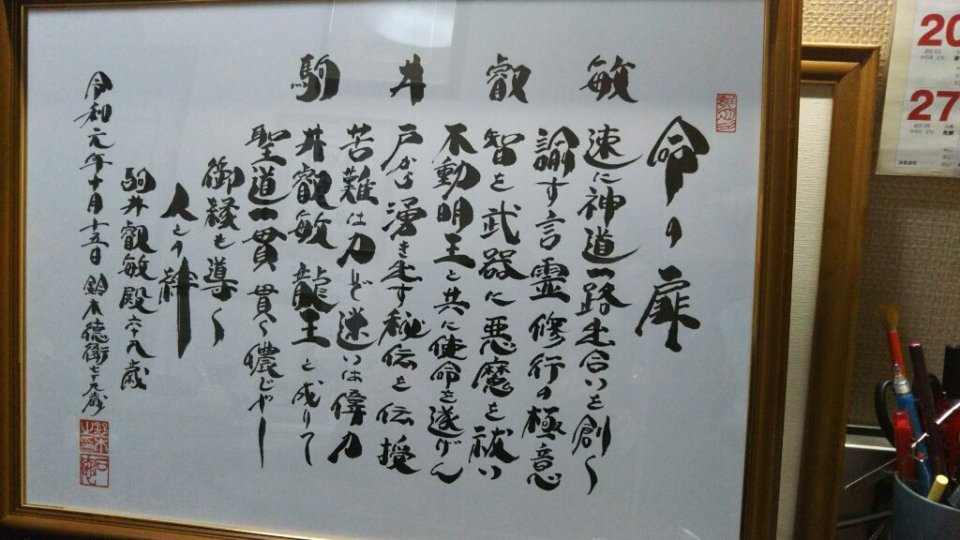 命の扉
敏 速に神道一路出合いを創く
諭す言霊修行の極意
叡 智を武器に悪魔を祓い
不動明王と共に使命を遂げん
井 戸から湧き出す秘伝を伝授
苦難は力ど迷いは偉力
駒 井叡敏龍王と成りて
聖道一貫貫く儂じゃー
御縁も導く
人との絆
駒井叡敏殿六十八歳
令和元年十月十五日 鈴木徳衛七十九歳
20
27